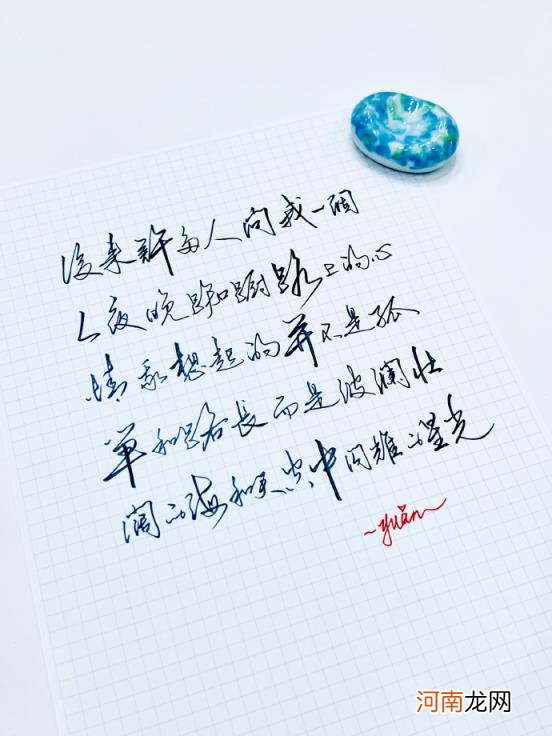 後来許多人问我一個
人夜晚踟蹰路上的心
情我想起的并不是孤
单和路長而是波澜壮
阔的海和天空中闪耀的星光
~yuan~
河南龙网